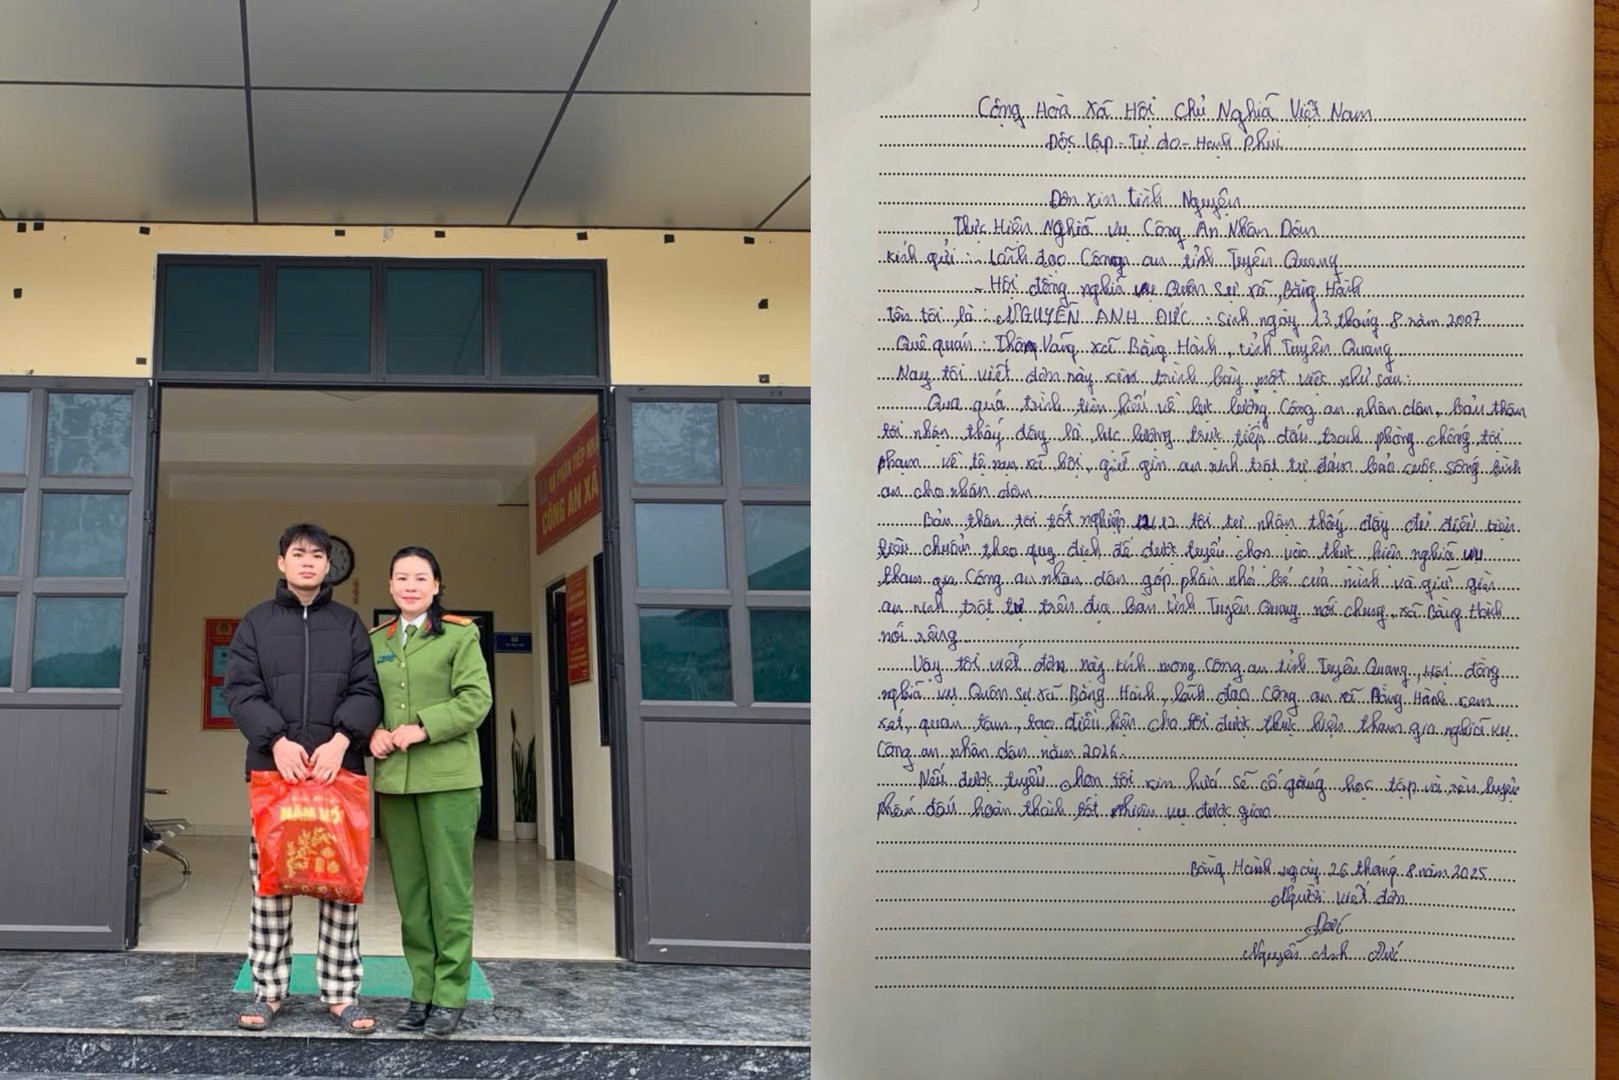 NĂM MỚI
BỘ PHẬN TIẾP NHẬN
CÔNG AN XÃ
Cộng Hoà Xã Hội Chủ Nghĩa Việt Nam
Độc lập - Tự do - Hạnh Phúc
Đơn xin tình Nguyện
Thực Hiện Nghĩa vụ Công An Nhân Dân
Kính gửi: - Lãnh đạo Công an tỉnh Tuyên Quang
- Hội đồng nghĩa vụ Quân sự xã Bằng Hành
tên tôi là: NGUYỄN ANH ĐỨC Sinh ngày 13 tháng 8 năm 2007
Quê quán: Thôn Vàng xã Bằng Hành, tỉnh Tuyên Quang
Nay tôi viết đơn này xin trình bày một việc như sau:
Qua quá trình tìm hiểu về lực lượng Công an nhân dân, bản thân
tôi nhận thấy đây là lực lượng trực tiếp đấu tranh phòng chống tội
phạm về tệ nạn xã hội, giữ gìn an ninh trật tự đảm bảo cuộc sống bình
an cho nhân dân
Bản thân tôi tốt nghiệp 12 tôi tự nhận thấy đầy đủ điều kiện
tiêu chuẩn theo quy định để được tuyển chọn vào thực hiện nghĩa vụ
tham gia Công an nhân dân góp phần nhỏ bé của mình và giữ gìn
an ninh trật tự trên địa bàn tỉnh Tuyên Quang nói chung, xã Bằng Hành
nói riêng
Vậy tôi viết đơn này kính mong Công an tỉnh Tuyên Quang, Hội đồng
nghĩa vụ Quân sự xã Bằng Hành, lãnh đạo Công an xã Bằng Hành xem
xét, quan tâm, tạo điều kiện cho tôi được thực hiện tham gia nghĩa vụ
Công an nhân dân năm 2026.
Nếu được tuyển chọn tôi xin hứa sẽ cố gắng học tập và rèn luyện
phấn đấu hoàn thành tốt nhiệm vụ được giao
Bằng Hành ngày 26 tháng 8 năm 2025
Người viết đơn
Đức
Nguyễn Anh Đức